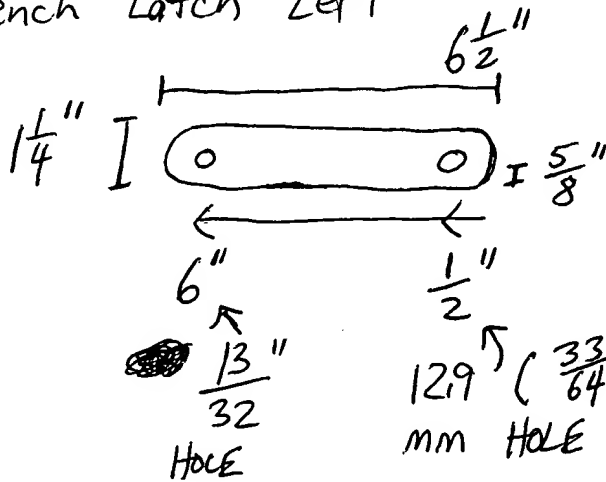 Latch Left
6 1/2"
1 1/4"
5/8"
6"
1/2"
13/32"
HOLE
12,9 ( 33/64
mm HOLE